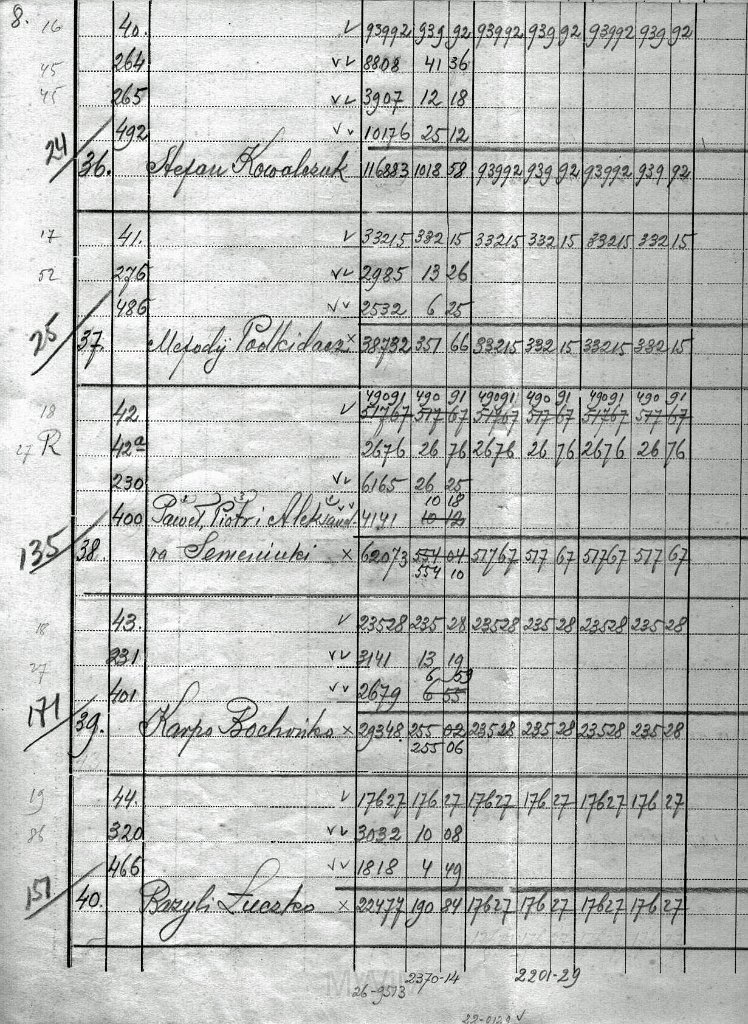 8.
16 40. v 93992 939 92 93992 939 92 93992 939 92
45 264 vv 8808 41 36
45 265 vv 3907 12 18
492 vv 10176 25 12
24 36. Stefan Kowalczuk 116883 1018 58 93992 939 92 93992 939 92
17 41. v 33215 332 15 33215 332 15 33215 332 15
52 276 vv 2985 13 26
486 vv 2532 6 25
25 37. Mefodij Podkidacz x 38732 351 66 33215 332 15 33215 332 15
49091 490 91 49091 490 91 49091 490 91
18 42 v 51767 517 67 51767 517 67 51767 517 67
27 R 42a 2676 26 76 2676 26 76 2676 26 76
230 vv 6165 26 25
10 18
400 Paweł, Piotr i Aleksand- 4141 10 12
135 38. ra Semeniuki x 62073 554 04 51767 517 67 51767 517 67
554 10
18 43. v 23528 235 28 23528 235 28 23528 235 28
27 231 vv 3141 13 19
6 59
401 vv 2679 6 55
171 39. Karpo Bochońko x 29348 255 02 23528 235 28 23528 235 28
255 06
19 44. v 17627 176 27 17627 176 27 17627 176 27
86 320 vv 3032 10 08
466 vv 1818 4 49
151 40. Bazyli Łuczko x 22477 190 84 17627 176 27 17627 176 27
2370-14 2201-29
26-9513
22-0129 v